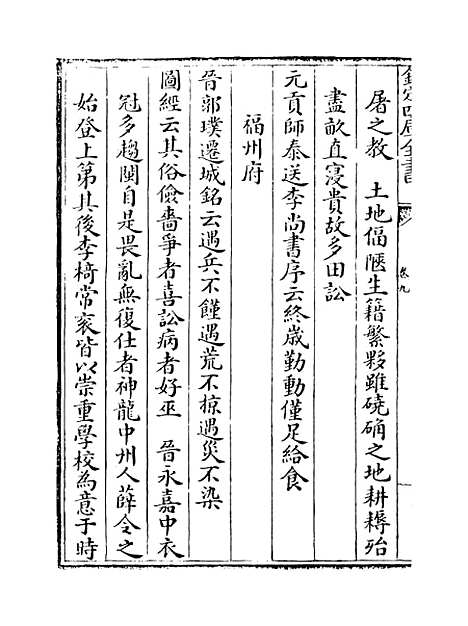 欽定四庫全書
卷九
屠之教　土地偪陋生籍繁夥雖磽确之地耕耨殆
盡畝直寖貴故多田訟
元貢師泰送李尚書序云終歲勤動僅足給食
福州府
晉郭璞遷城銘云遇兵不饉遇荒不掠遇災不染
圖經云其俗儉嗇爭者喜訟病者好巫　晉永嘉中衣
冠多趨閩自是畏亂無復仕者神龍中州人薛令之
始登上第其後李椅常衮皆以崇重學校為意于時